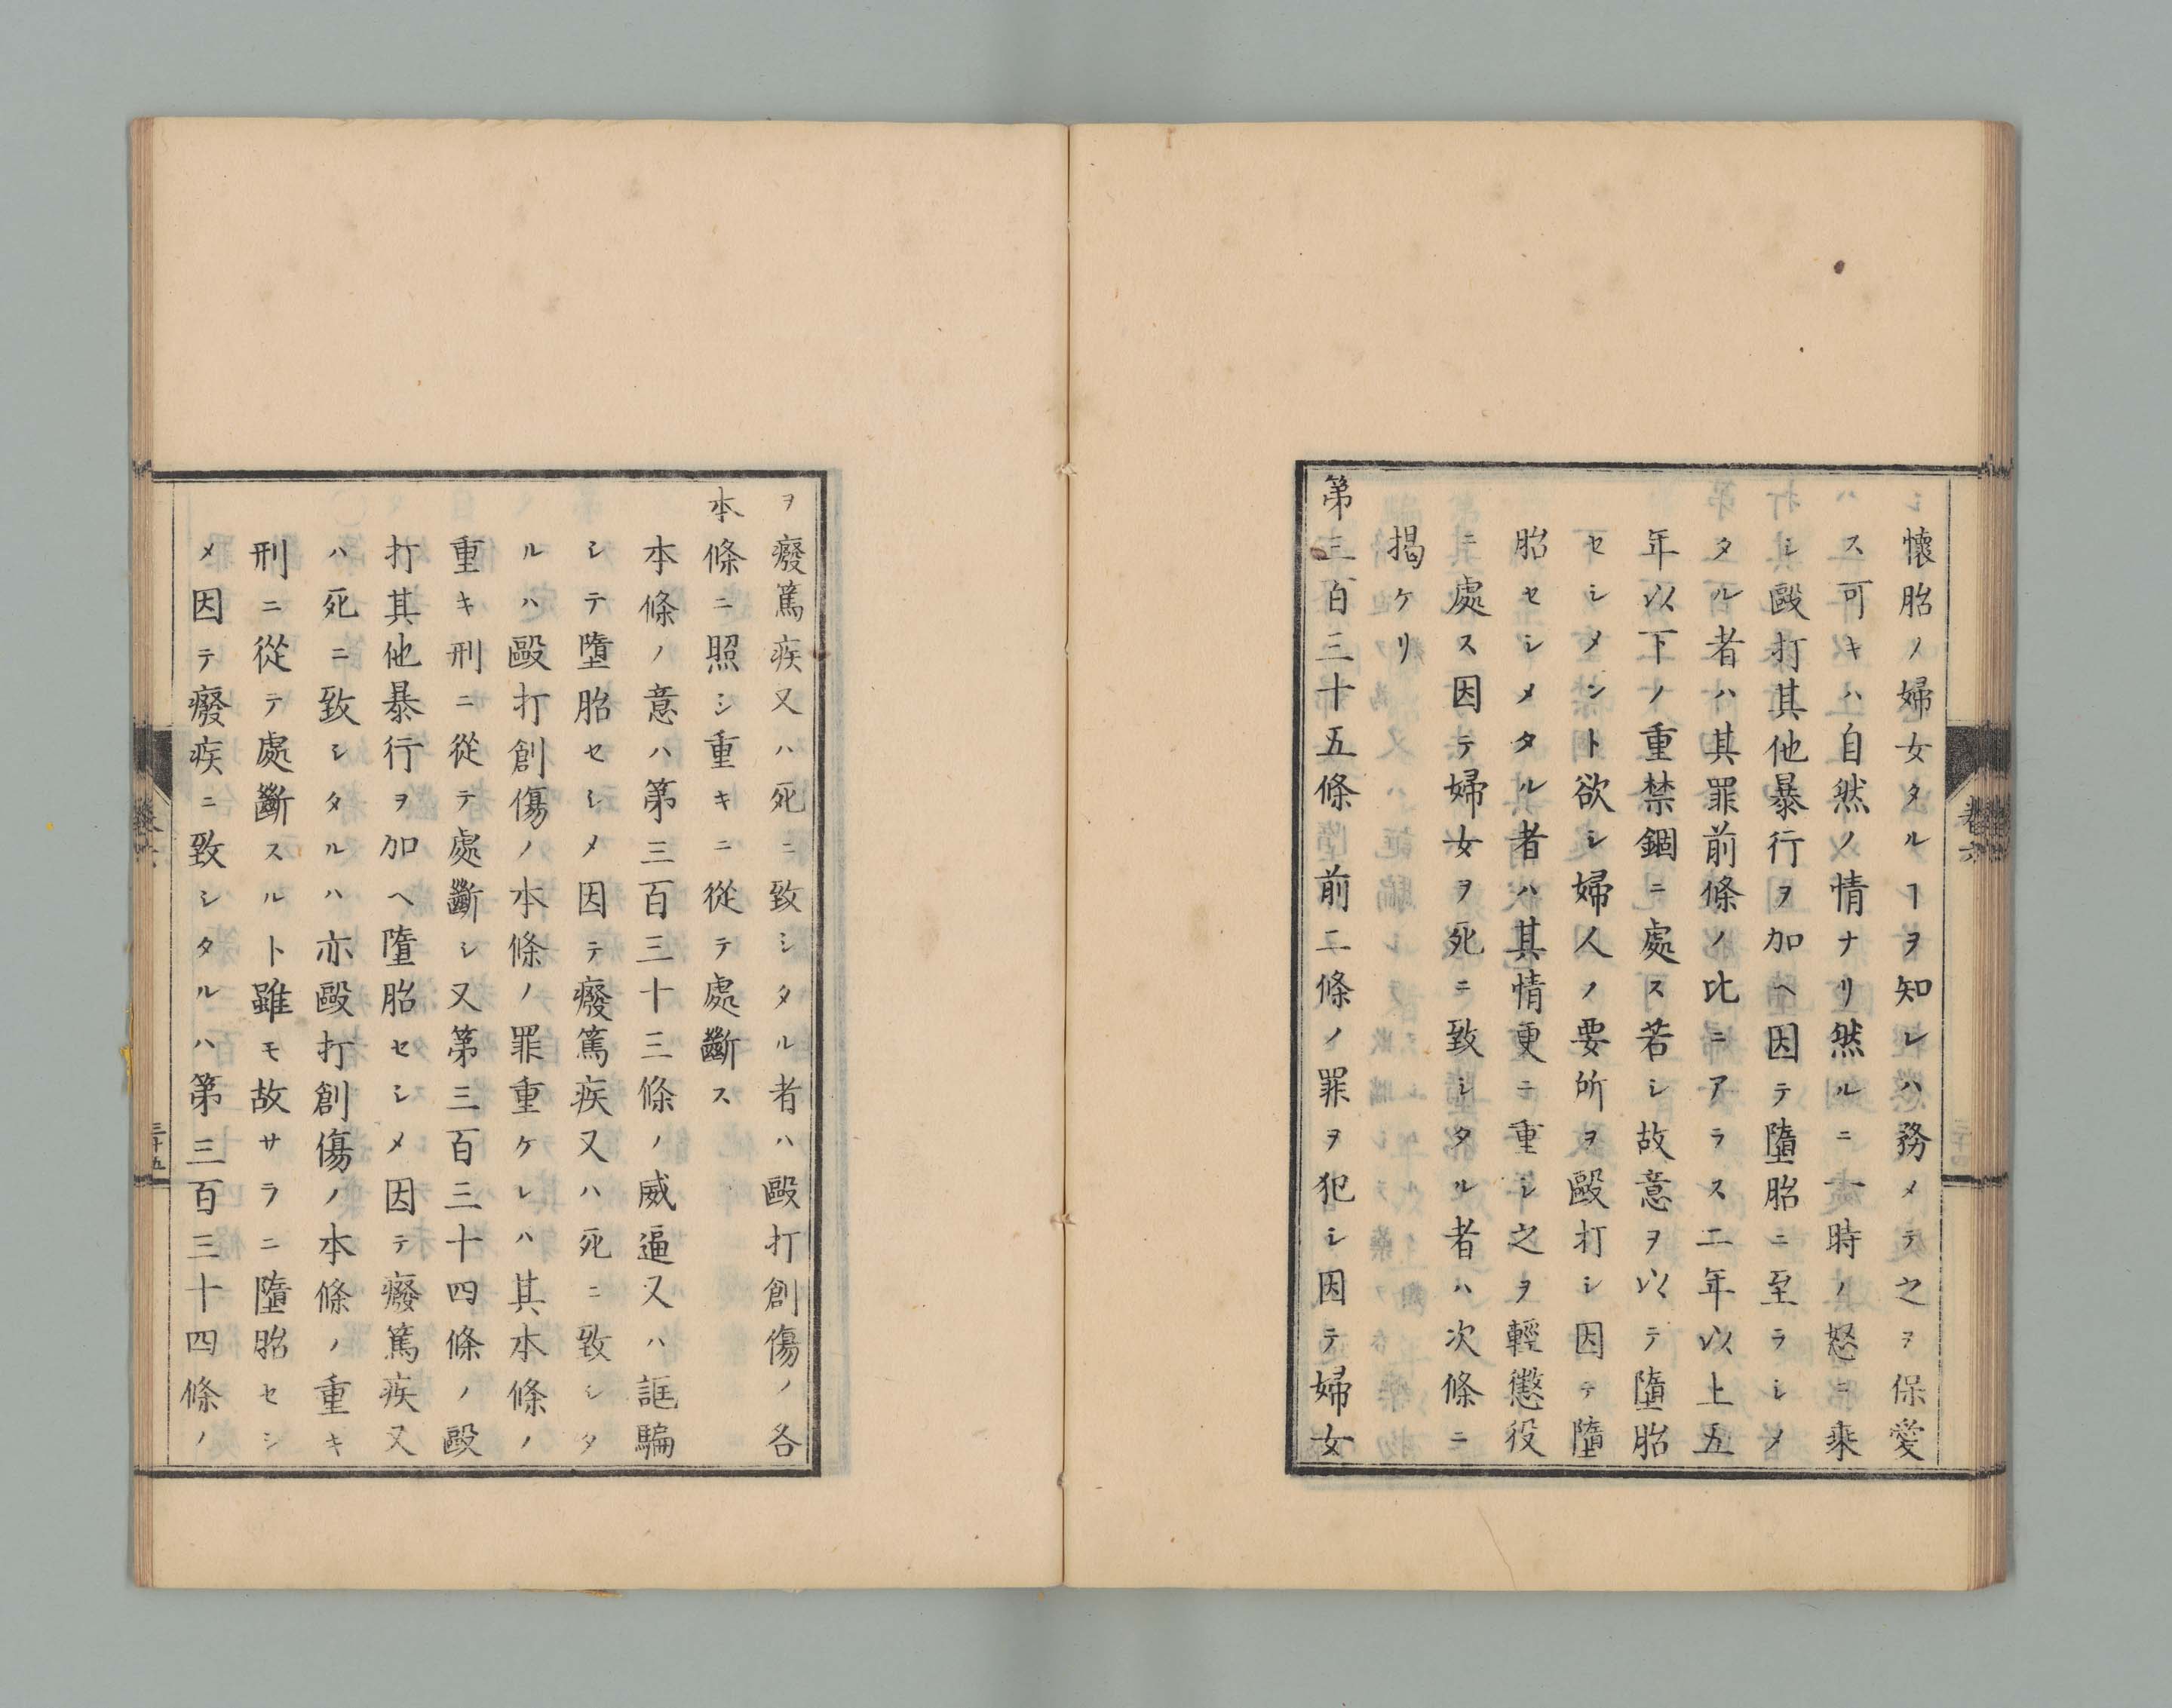 懷胎ノ婦女タルヿヲ知レハ務メテ之ヲ保愛
ス可キハ自然ノ情ナリ然ルニ一時ノ怒ニ乘
シ毆打其他暴行ヲ加ヘ因テ墮胎ニ至ラシメ
タル者ハ其罪前條ノ比ニアラス二年以上五
年以下ノ重禁錮ニ處ス若シ故意ヲ以テ墮胎
セシメント欲シ婦人ノ要所ヲ毆打シ因テ墮
胎セシメタル者ハ其情更ニ重シ之ヲ輕懲役
ニ處ス因テ婦女ヲ死ニ致シタル者ハ次條ニ
揭ケリ
第三百三十五條前二條ノ罪ヲ犯シ因テ婦女
卷六
ヲ癈篤疾又ハ死ニ致シタル者ハ毆打創傷ノ各
本條ニ照シ重キニ從テ處斷ス
本條ノ意ハ第三百三十三條ノ威逼又ハ誆騙
シテ墮胎セシメ因テ癈篤疾又ハ死ニ致シタ
ルハ毆打創傷ノ本條ノ罪重ケレハ其本條ノ
重キ刑ニ從テ處斷シ又第三百三十四條ノ毆
打其他暴行ヲ加ヘ墮胎セシメ因テ癈篤疾又
ハ死ニ致シタルハ亦毆打創傷ノ本條ノ重キ
刑ニ從テ處斷スルト雖モ故サラニ墮胎セシ
メ因テ癈疾ニ致シタルハ第三百三十四條ノ
三十五